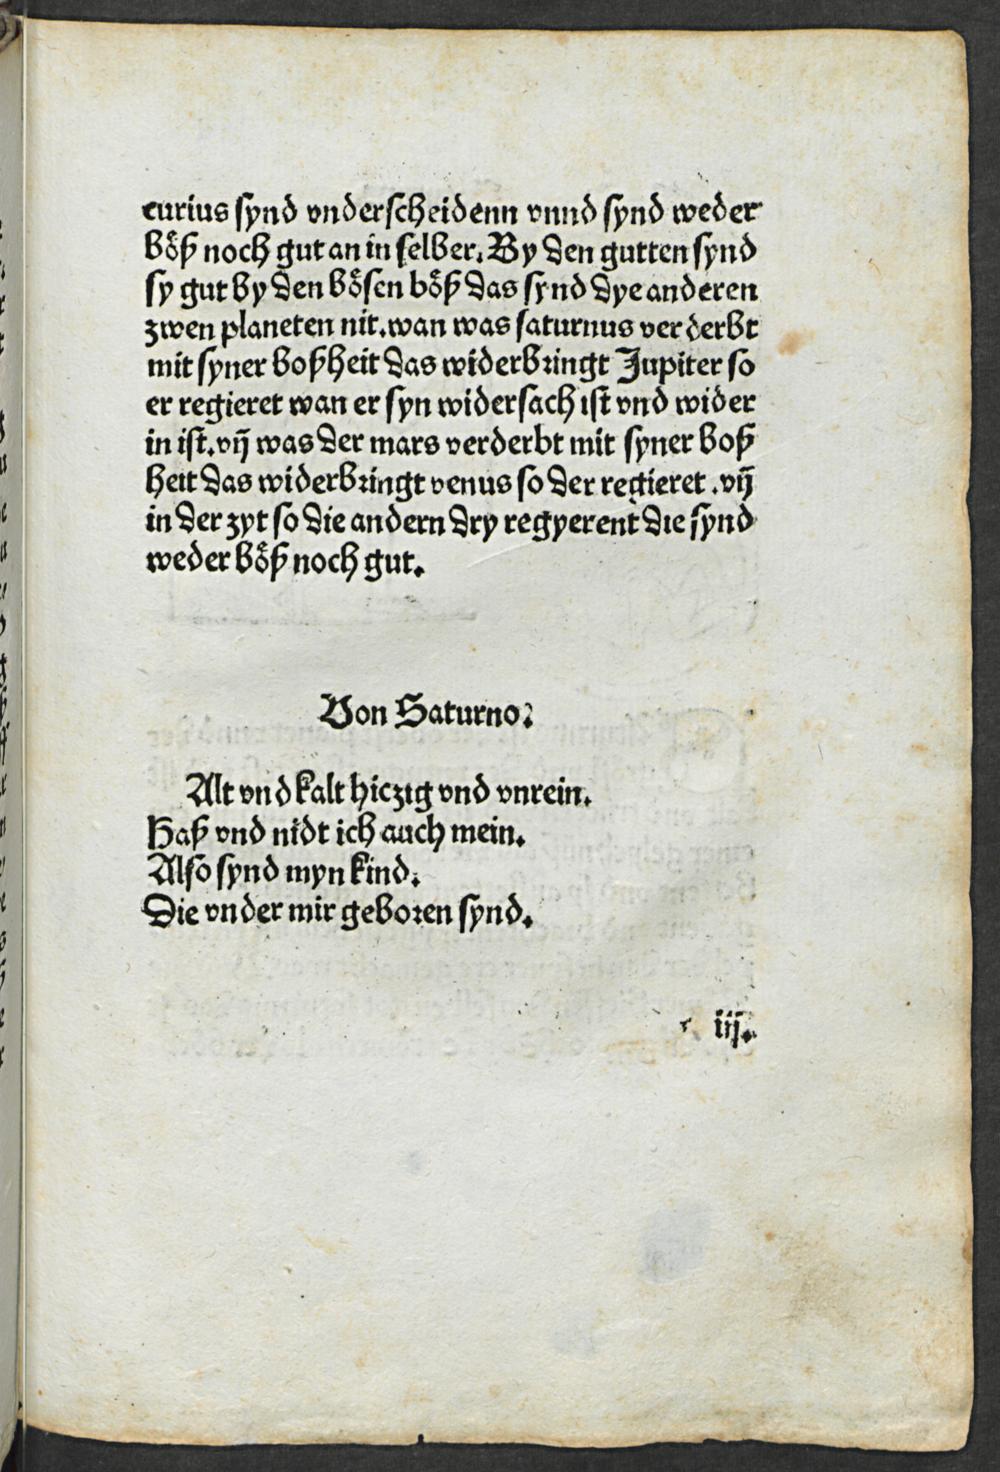 curius synd vnderscheidenn vnnd synd weder
böß noch gut an in selber. By den gutten synd
sy gut by den bösen böß das synd dye anderen
zwen planeten nit. wan was saturnus verderbt
mit syner boßheit das widerbringt Jupiter so
er regieret wan er syn widersach ist vnd wider
in ist. vñ was der mars verderbt mit syner boß
heit das widerbringt venus so der regieret .vñ
in der zyt so die andern dry regyerent die synd
weder böß noch gut.
Von Saturno.
Alt vnd kalt hiczig vnd vnrein.
Haß vnd nidt ich auch mein.
Also synd myn kind.
Die vnder mir geboren synd.
iij.